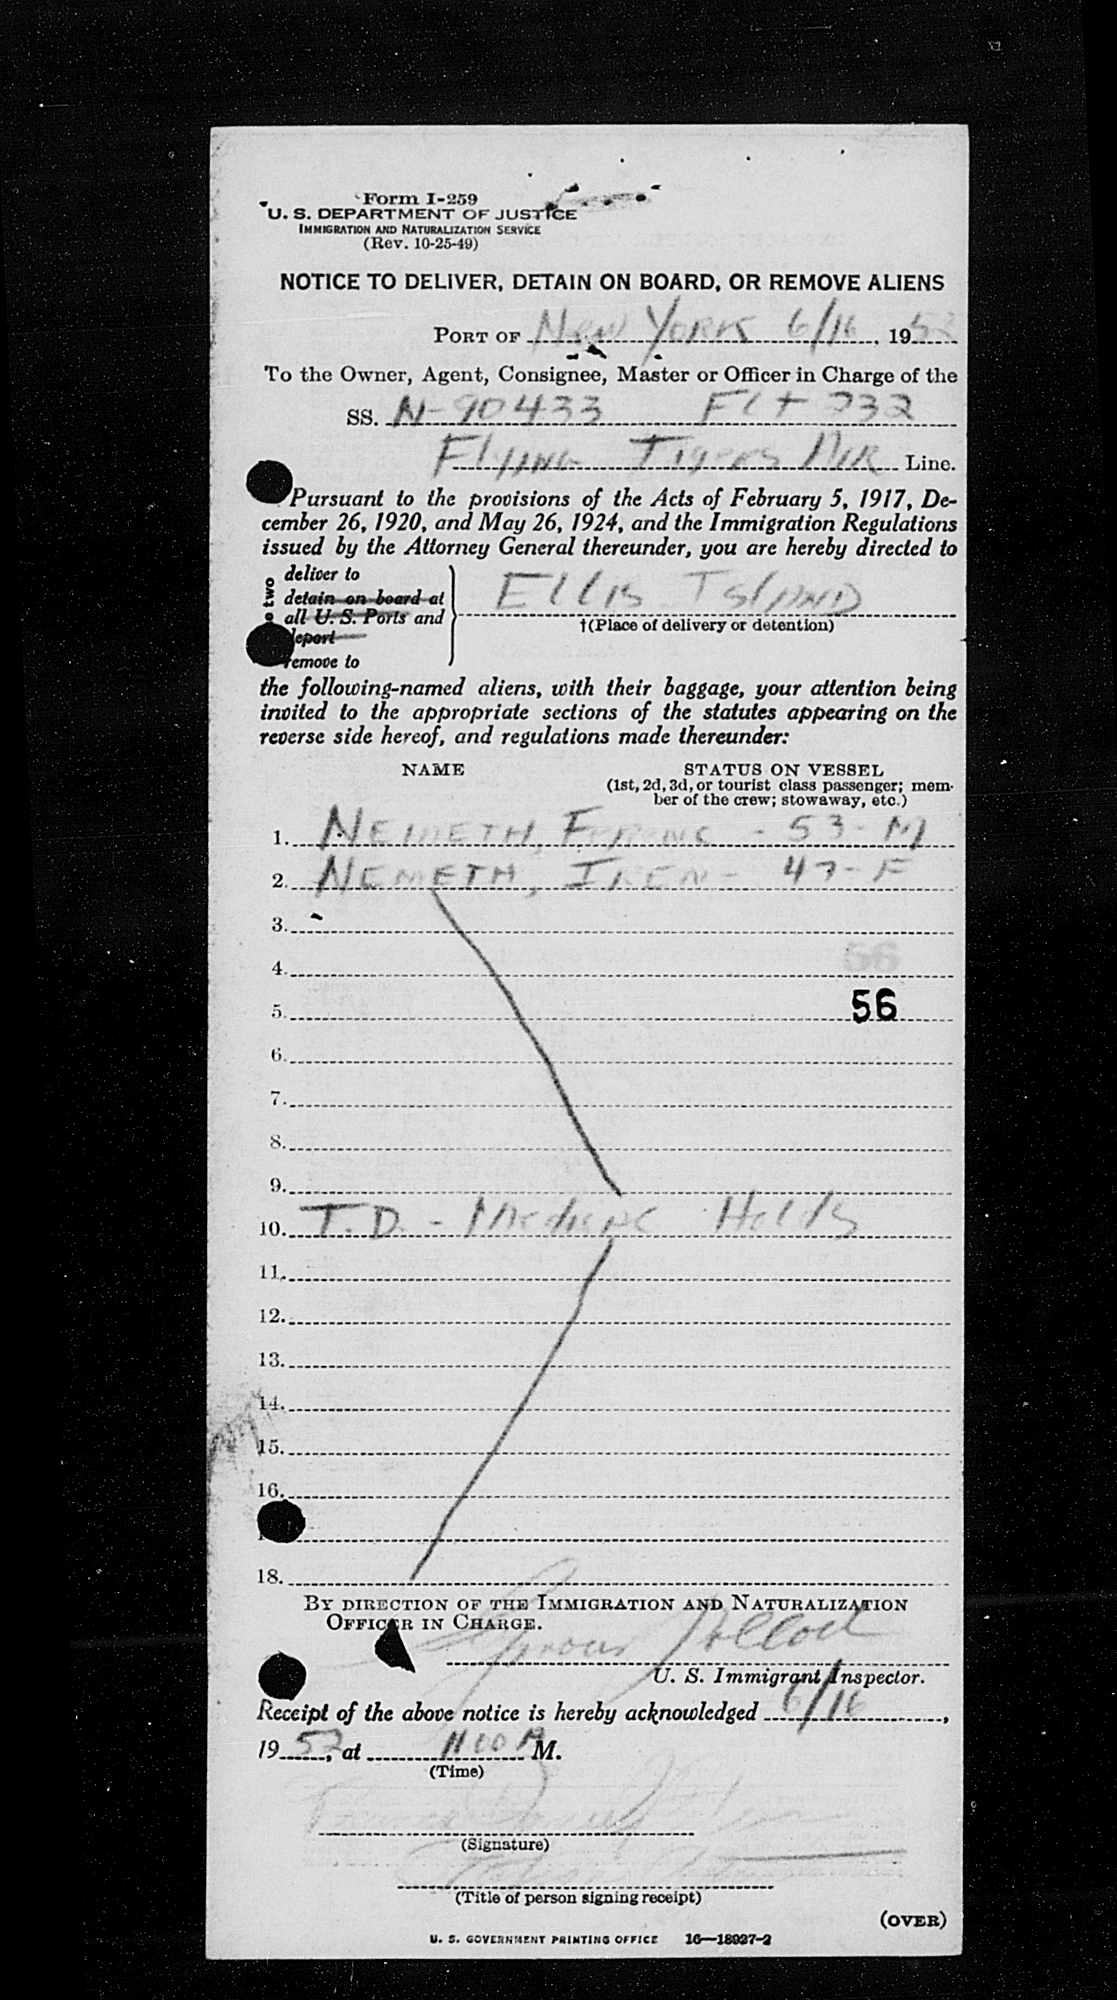 Form I-259
U. S. DEPARTMENT OF JUSTICE
IMMIGRATION AND NATURALIZATION SERVICE
(Rev. 10-25-49)
NOTICE TO DELIVER, DETAIN ON BOARD, OR REMOVE ALIENS
PORT OF NEW YORK 6/16, 1952
To the Owner, Agent, Consignee, Master or Officer in Charge of the
SS. N-90433 FLT 732
FLYING TIGERS AIR Line.
Pursuant to the provisions of the Acts of February 5, 1917, De-
cember 26, 1920, and May 26, 1924, and the Immigration Regulations
issued by the Attorney General thereunder, you are hereby directed to
deliver to
detain on board at
all U. S. Ports and
deport
remove to
e two
ELLIS ISLAND
†(Place of delivery or detention)
the following-named aliens, with their baggage, your attention being
invited to the appropriate sections of the statutes appearing on the
reverse side hereof, and regulations made thereunder:
NAME STATUS ON VESSEL
(1st, 2d, 3d, or tourist class passenger; mem-
ber of the crew; stowaway, etc.)
1. NEMETH, FERENC - 53 - M
2. NEMETH, IREN - 47 - F
3.
4.
5. 56
6.
7.
8.
9.
10. T.D. - Medical Holds
11.
12.
13.
14.
15.
16.
18.
BY DIRECTION OF THE IMMIGRATION AND NATURALIZATION
OFFICER IN CHARGE.
U. S. Immigrant Inspector.
Receipt of the above notice is hereby acknowledged 6/16,
1952, at 11 00 A M.
(Time)
(Signature)
(Title of person signing receipt)
(OVER)
U. S. GOVERNMENT PRINTING OFFICE 16—18927-2